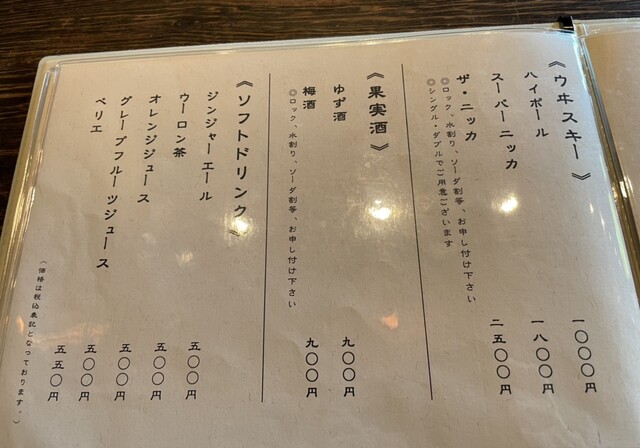 《ウヰスキー》
ハイボール 一〇〇〇円
スーパーニッカ 一八〇〇円
ザ・ニッカ 二五〇〇円
◎ロック、水割り、ソーダ割等、お申し付け下さい
◎シングル・ダブルでご用意ございます
《果実酒》
ゆず酒 九〇〇円
梅酒 九〇〇円
◎ロック、水割り、ソーダ割等、お申し付け下さい
《ソフトドリンク》
ジンジャーエール 五〇〇円
ウーロン茶 五〇〇円
オレンジジュース 五〇〇円
グレープフルーツジュース 五〇〇円
ペリエ 五五〇円
(価格は税込表記となっております。)